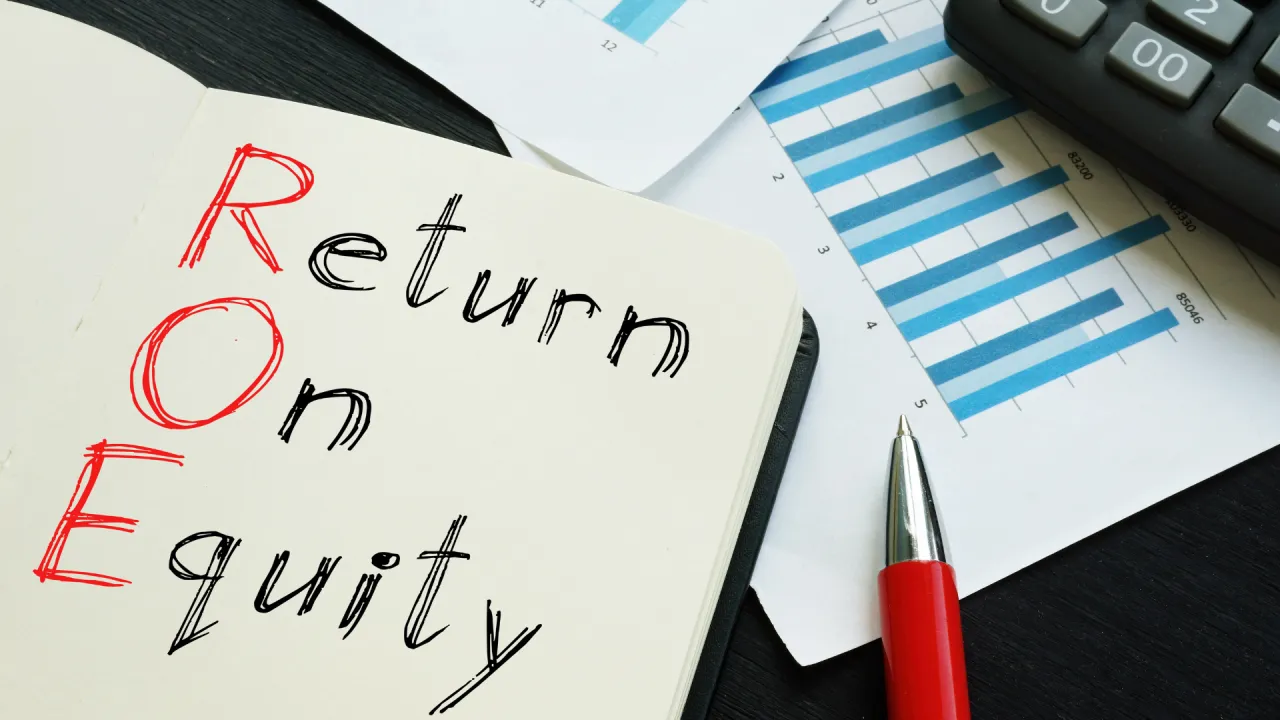 Return
On
Equity
11
12
2
3
4
5
83200
85046
0
2
00